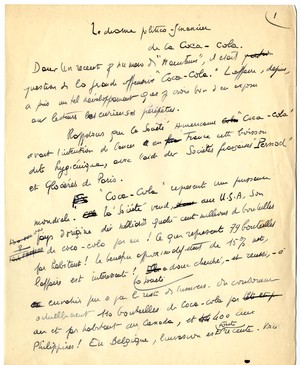 1
Le drame politico-financier
de la Coca-cola.
Dans un récent numéro d'"Aventure", il était
question de la grande offensive "Coca-Cola". L'affaire, depuis,
a pris un tel développement que je crois bon d'en exposer
aux lecteurs les curieuses péripéties.
Rappelons que la Société Américaine "Coca-Cola"
avait l'intention de lancer en France cette boisson
dite hygiénique, avec l'aide des Sociétés françaises "Pernod"
et Glacières de Paris.
"Coca-Cola" représente une puissance
mondiale. La Société vend, aux U.S.A. son
pays d'origine dix milliards quatre cent millions de bouteilles
de coca-cola par an! Ce que représente 79 bouteilles
par habitant! Le bénéfice approximatif étant de 15%
l'affaire est intéressante! donc cherché, et réussi, à
envahir peu à peu le reste du monde. On
actuellement 120 bouteilles de coca-cola par
an et par habitant au Canada, et 400 aux
Philippines! En Belgique, l'invasion est toute récente.